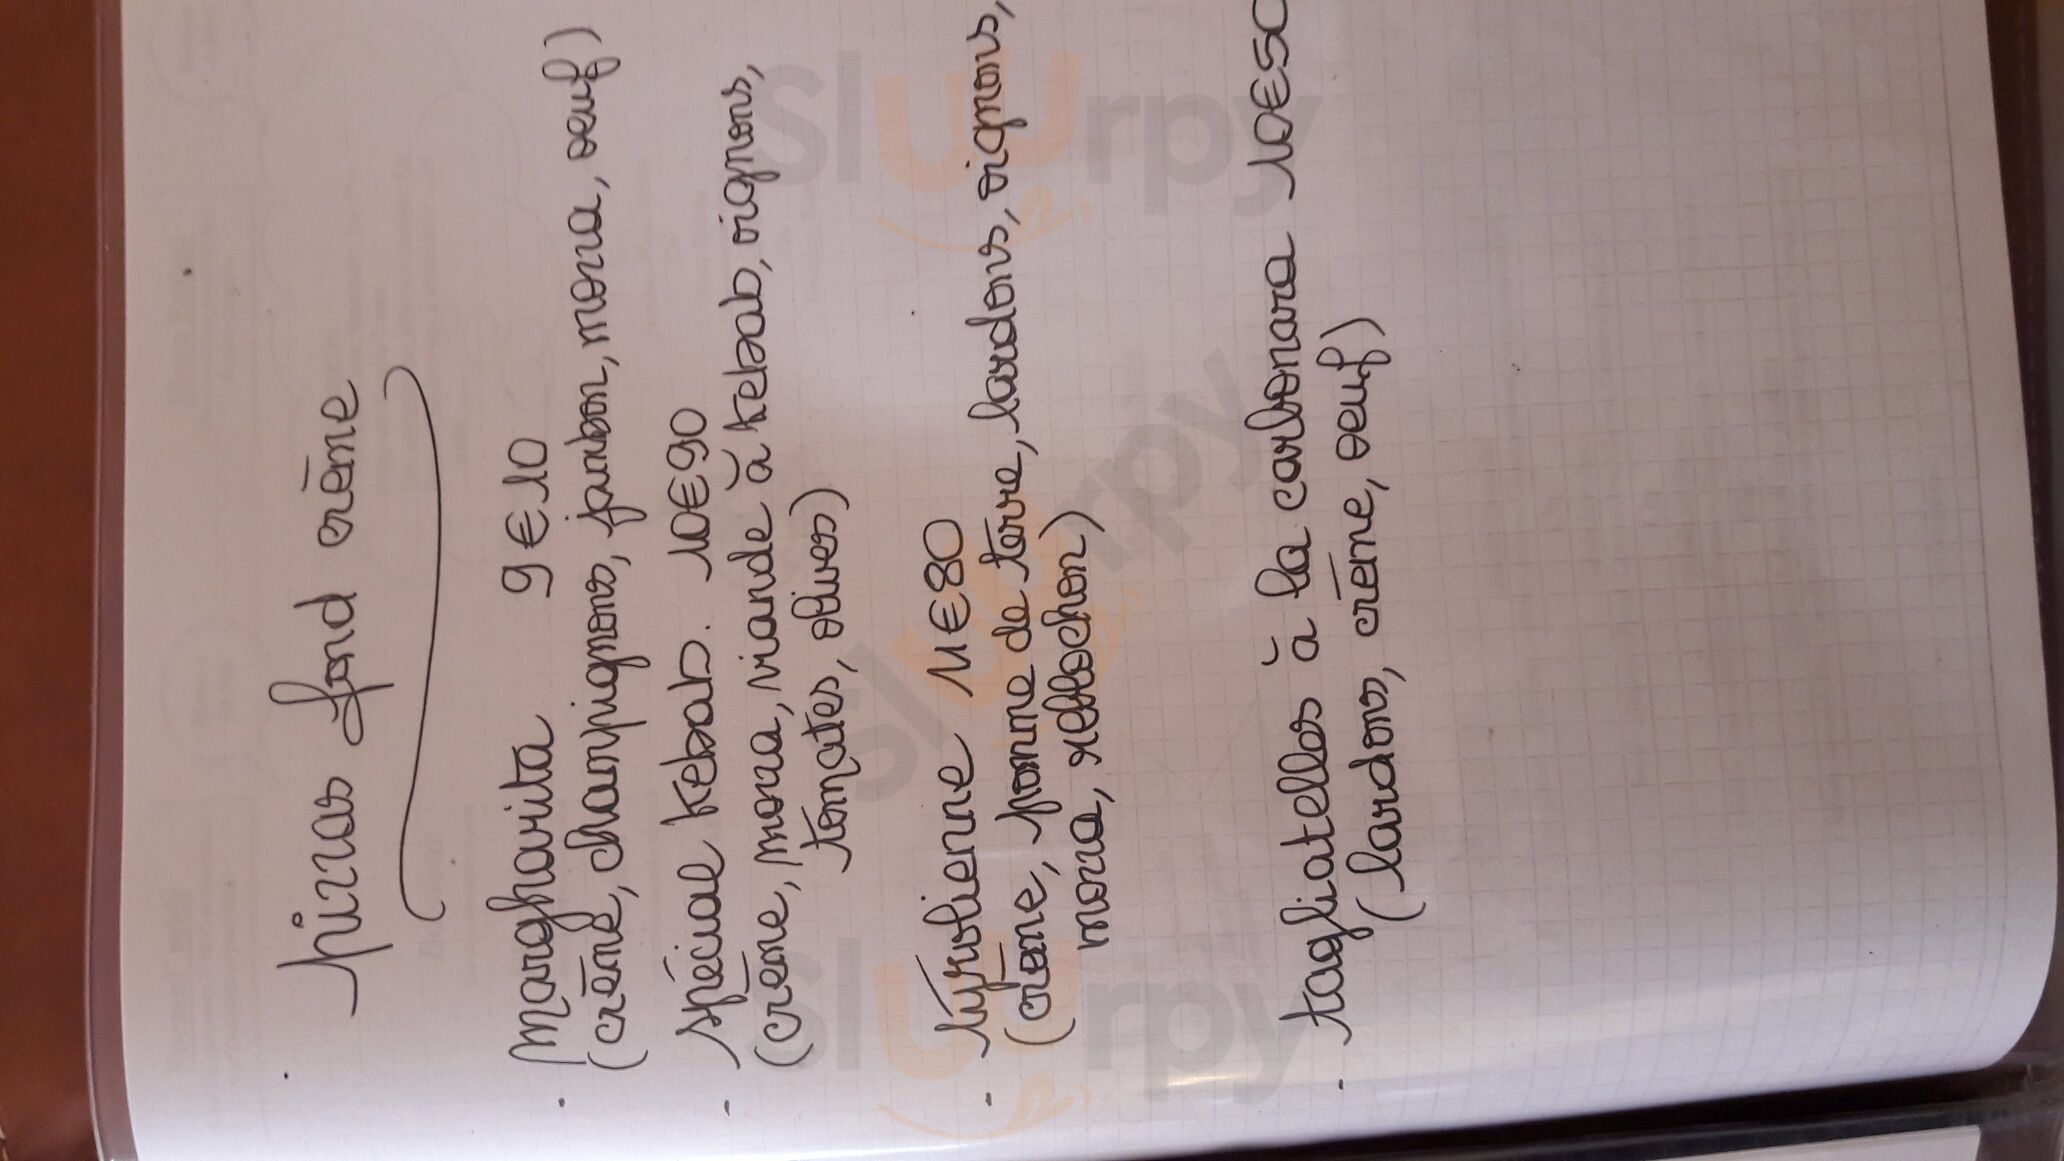 pizzas fond crème
- Margharita 9€10
(crème, champignons, jambon, mozza, oeuf)
- spéciale kebab. 10€90
(crème, mozza, viande à kebab, oignons,
tomates, olives)
- tyrolienne 11€80
(crème, pomme de terre, lardons, oignons,
mozza, reblochon)
- tagliatelles à la carbonara 10€50
(lardons, crème, oeuf)
Sluurpy
Sluurpy
Sluurpy